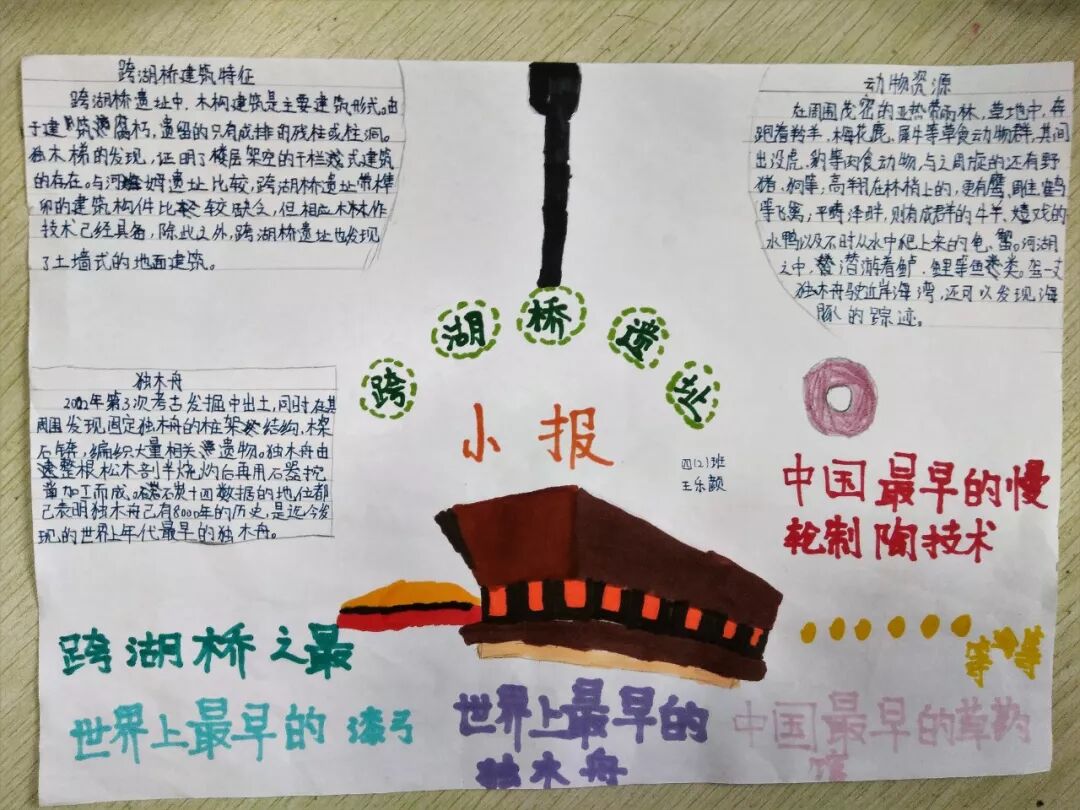 跨湖桥建筑特征
跨湖桥遗址中,木构建筑是主要建筑形式。由
于建筑腐朽,遗留的只有成排的残柱或柱洞。
独木梯的发现,证明了楼层架空的干栏式建筑
的存在。与河姆遗址比较,跨湖桥遗址带榫
卯的建筑构件比较缺乏,但相应木作
技术已经具备,除此之外,跨湖桥遗址也发现
了土墙式的地面建筑。
动物资源
在周围茂密的亚热带雨林,草地中,奔
跑着羚羊,梅花鹿、犀牛等草食动物群,其间
出没虎、豹等肉食动物,与之周旋的还有野
猪、狗等;高翔在林梢上的,更有鹰、雕、鹤
等飞禽;平畴泽畔,则有成群的牛羊、嬉戏的
水鸭以及不时从水中爬上来的龟、蟹。河湖
之中,潜游着鲈、鲤等鱼类。驾一丈
独木舟驶近岸海湾,还可以发现海
豚的踪迹。
跨湖桥遗址
小报
四(2)班
王乐颜
独木舟
2002年第3次考古发掘中出土,同时在其
周围发现固定独木舟的桩架结构,木桨
石锛,编织大量相关遗物。独木舟由
整根松木剖半烧灼后再用石器挖
凿加工而成。碳十四数据的地位都
已表明独木舟已有8000年的历史,是迄今发
现的世界上年代最早的独木舟。
中国最早的慢
轮制陶技术
跨湖桥之最
等等
世界上最早的漆弓
世界上最早的
独木舟
中国最早的草药
罐